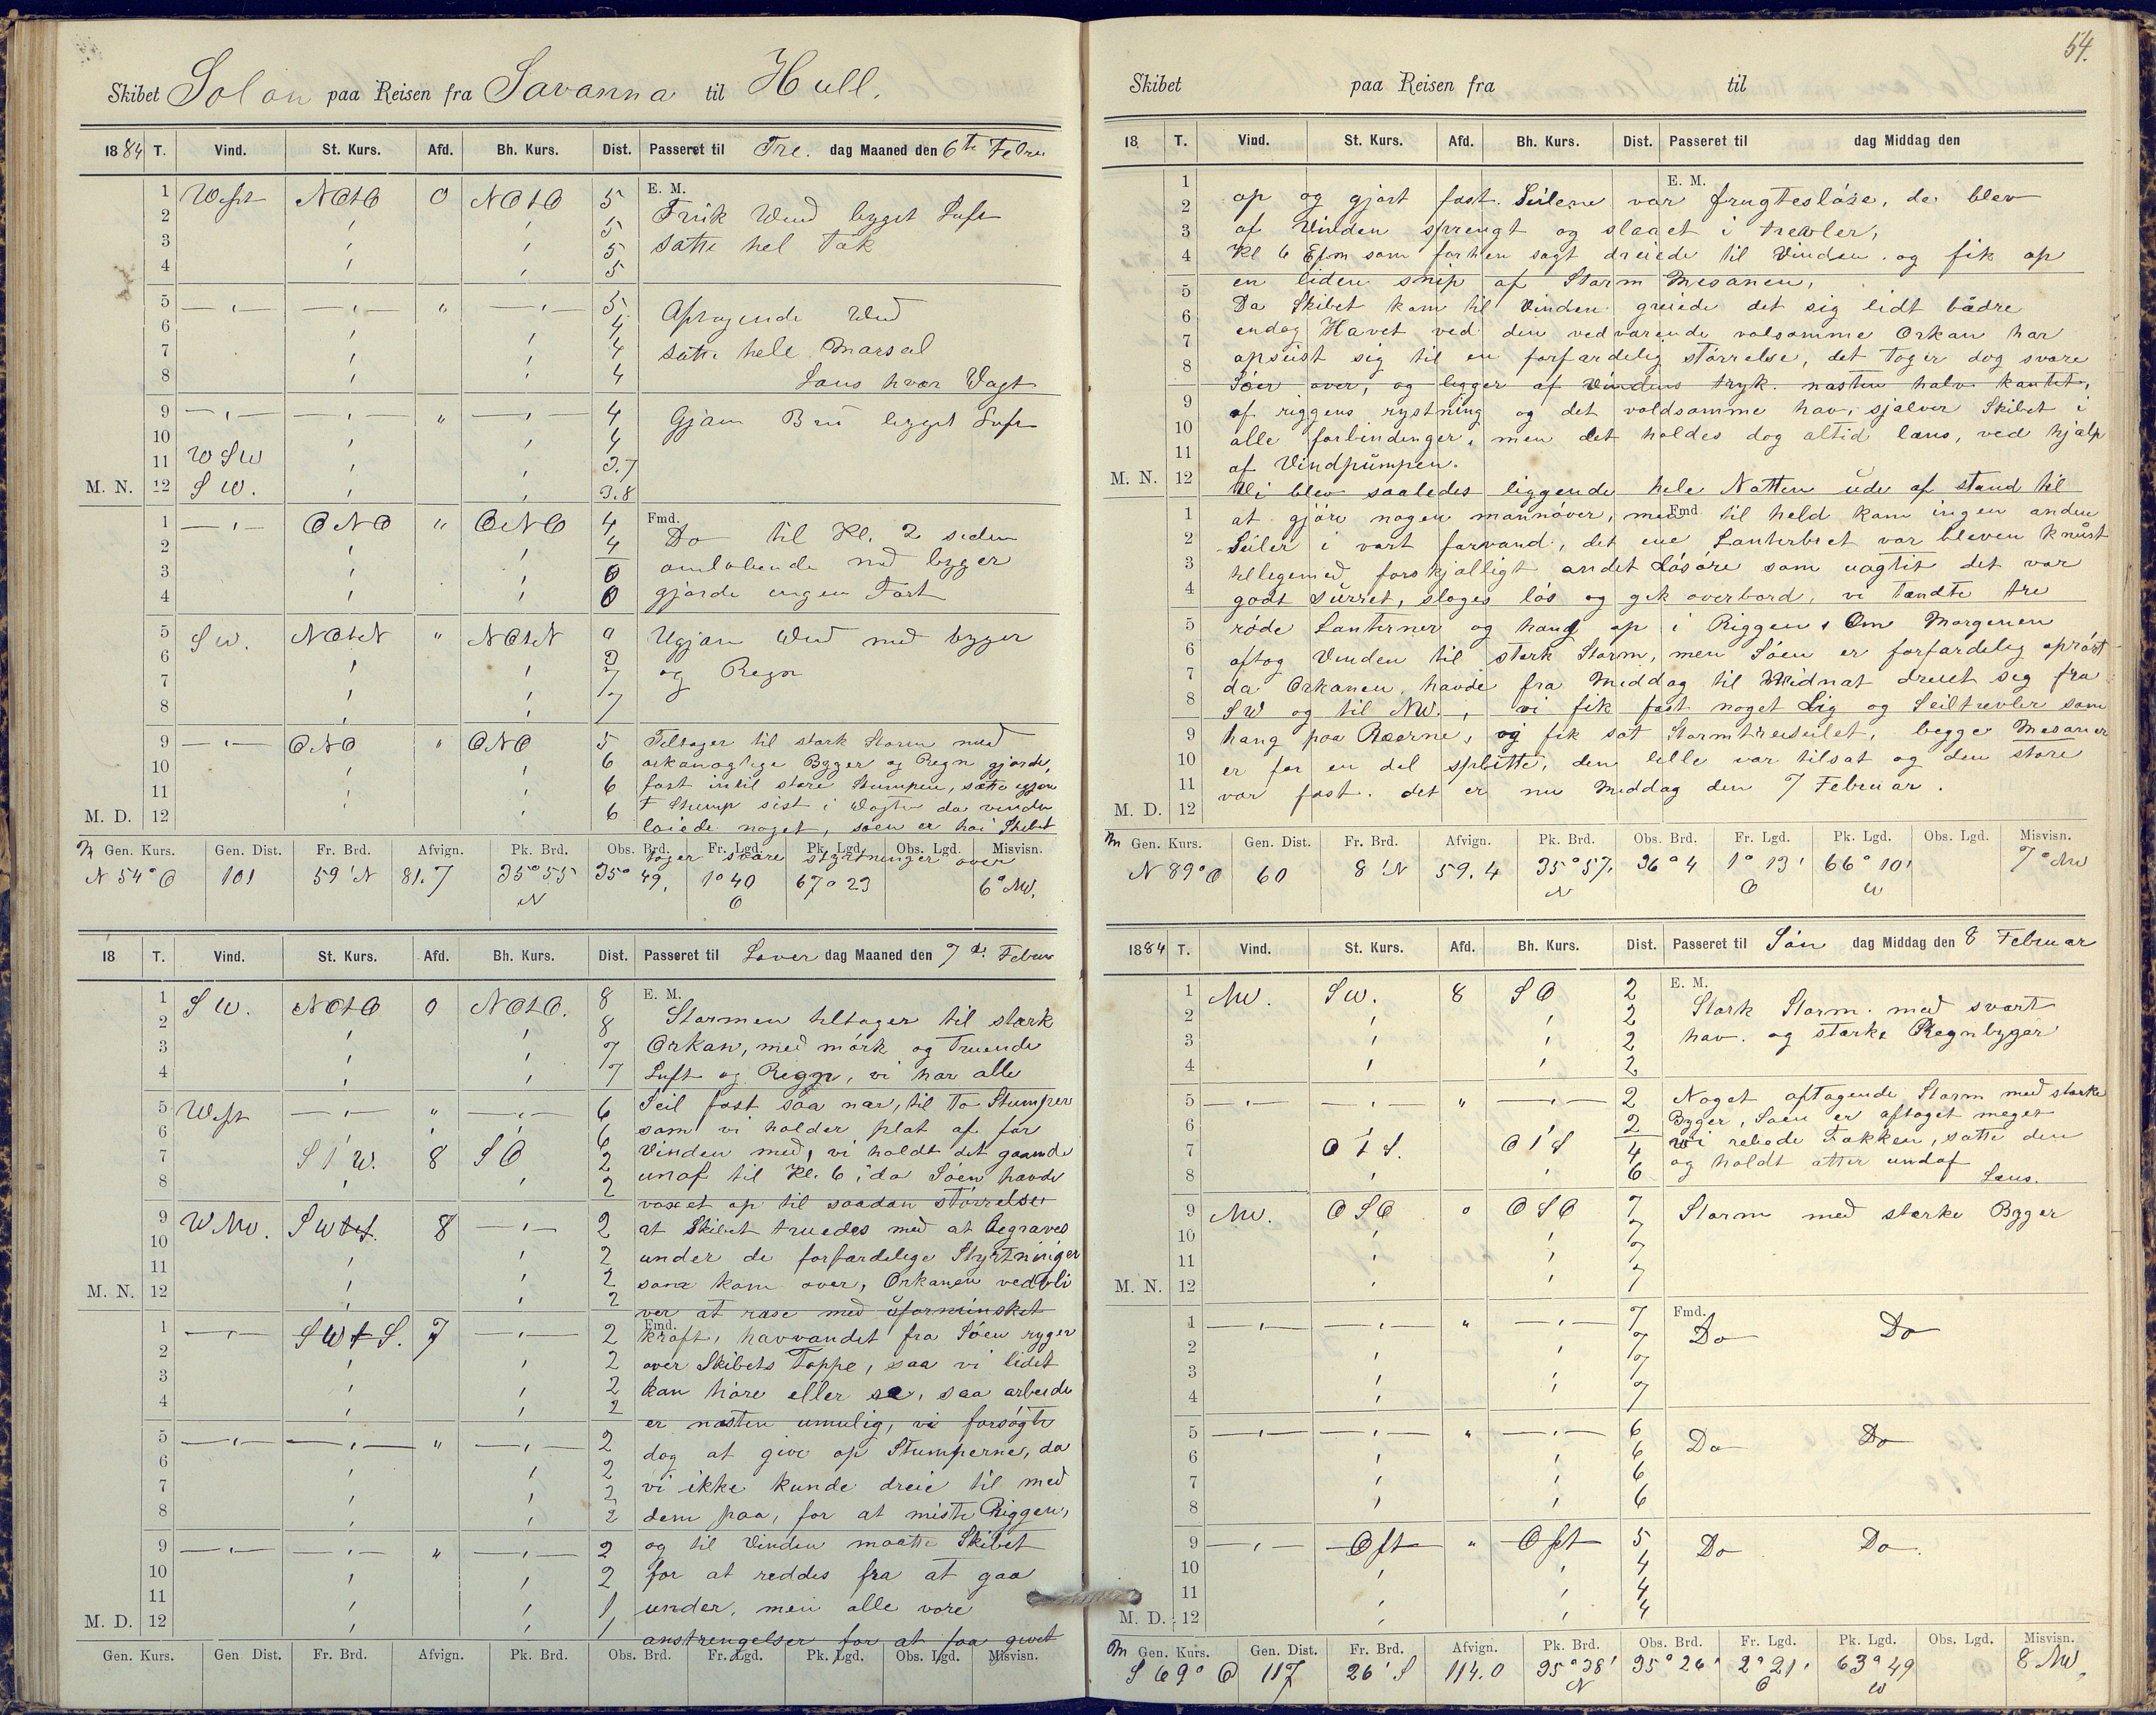 Skibet Solon paa Reisen fra Savanna til Hull.
1884 T. Vind. St. Kurs. Afd. Bh. Kurs. Dist. Passeret til Fre. dag Maaned den 6te Febru
E. M.
1 West NOtO 0 NOtO 5 Frisk Vind bygget Luft
2 5
3 5 satte hel Fok
4 5
5 5 Aftagende Vind
6 4
7 4 satte hele Marsel
8 4 Læns hver Vagt
9 4 Gjæv Bris bygget Luft
10 4
11 WSW 3.7
M. N. 12 SW. 3.8
Fmd.
1 ONO " ONO 4 Do til Kl. 2 siden
2 4 omløbende med byger
3 0
4 0 gjorde ingen Fart
5 SW. NOtN " NOtN 0 Ugjævn Vind med byger
6 og Regn
7 7
8 7
9 ONO " ONO 5 Tiltager til stærk Storm med
10 6 orkanagtige Byger og Regn gjorde
11 6 fast intil store Stumpen,
M. D. 12 6 F Stump sist i Vagten da vinden
løiede noget, søen er høi Skibet
tager svære styrtninger over
Gen. Kurs. Gen. Dist. Fr. Brd. Afvign. Pk. Brd. Obs. Brd. Fr. Lgd. Pk. Lgd. Obs. Lgd. Misvisn.
N 54° O 101 59' N 81.7 35° 55 N 35° 49, 1° 40 O 67° 23 6° NW.
18 T. Vind. St. Kurs. Afd. Bh. Kurs. Dist. Passeret til Løver dag Maaned den 7de Februar
E. M.
1 SW. NOtO 0 NOtO. 8 Stormen tiltager til stærk
2 8
3 7 Orkan, med mørk og Truende
4 7 Luft og Regn, vi har alle
5 West " 6 Seil fast saa nær, til To Stumper
6 6 som vi holder plat af for
7 StW. 8 SO 2 Vinden med, vi holdt det gaaende
8 2 unaf til Kl. 6, da Søen havde
voxet op til saadan størrelse
9 WNW. SWtS. 8 2 at Skibet truedes med at begraves
10 2 under de forfærdelige Styrtninger
11 2 som kom over, Orkanen vedbli
M. N. 12 2 ver at rase med uforminsket
Fmd.
1 SWtS. 7 2 kraft, havvandet fra Søen ryger
2 2 over Skibets Toppe, saa vi lidet
3 2 kan høre eller se, saa arbeide
4 2 er næsten umulig, vi forsøgte
5 " 2 dog at give op Stumperne, da
6 2
7 2 vi ikke kunde dreie til med
8 2 dem paa, for at miste Riggen,
9 " 2 og til Vinden maatte Skibet
10 2 for at reddes fra at gaa
11 1 under, men alle vore
M. D. 12 1 anstrengelser for at faa givet
Gen. Kurs. Gen Dist. Fr. Brd. Afvign. Pk. Brd. Obs. Brd. Fr. Lgd. Pk. Lgd. Obs. Lgd. Misvisn.
54.
Skibet paa Reisen fra til
18 T. Vind. St. Kurs. Afd. Bh. Kurs. Dist. Passeret til dag Middag den
E. M.
op og gjort fast Seilene var frugtesløse, de blev
af Vinden sprengt og slaaet i trevler,
Kl 6 Efm som forhen sagt dreiede til Vinden og fik op
en liden snip af Storm Mesanen,
Da Skibet kom til Vinden greiede det sig lidt bædre
endog Havet ved den vedvarende volsomme Orkan har
opreist sig til en forfærdelig størrelse, det Tager dog svære
Søer over, og ligger af Vindens tryk næsten halv kantet,
af riggens rystning og det voldsomme hav, sjælver Skibet i
alle forbindinger, men det holdes dog altid læns, ved hjælp
af Vindpumpen.
M. N. 12 Vi blev saaledes liggende hele Natten ude af stand til
at gjøre nogen mannøver, men til held kom ingen anden
Fmd
Seiler i vort farvand, det ene Lanterbret var bleven knust
tilligemed forskjælligt andet Løsøre som uagtet det var
godt surret, sloges løs og gik overbord, vi tændte tre
røde Lanterner og hang op i Riggen, Om Morgenen
aftog Vinden til stærk Storm, men Søen er forfærdelig oprørt
da Orkanen, havde fra Middag til Midnat dreiet sig fra
SW og til NW., vi fik fast noget Lig og Seiltrevler som
hang paa Ræerne, og fik sat Stormtreiseilet, begge Mesaner
er for en del splitte, den lille var tilsat og den store
M. D. 12 var fast. det er nu Middag den 7 Februar.
Gen. Kurs. Gen. Dist. Fr. Brd. Afvign. Pk. Brd. Obs. Brd. Fr. Lgd. Pk. Lgd. Obs. Lgd. Misvisn.
N 89° O 60 8' N 59.4 35° 57. N 36° 4 1° 13' O 66° 10' W 7° NW
1884 T. Vind. St. Kurs. Afd. Bh. Kurs. Dist. Passeret til Søn dag Middag den 8 Februar
E. M.
1 NW. SW. 8 SO 2 Stærk Storm med svært
2 2
3 2 hav. og stærke Regnbyger
4 2
5 " 2 Noget aftagende Storm med stærke
6 2 Byger, Søen er aftaget meget
7 OtS. OtS 4 vi rebede Fokken, satte den
8 6 og holdt atter undaf
Læns.
9 NW. OSO 0 OSO 7 Storm med stærke Byger
10 7
11 7
M. N. 12 7
Fmd.
1 " 7 Do Do
2 7
3 7
4 7
5 " 6 Do Do
6 6
7 6
8 6
9 Ost " Ost 5 Do Do
10 4
11 4
M. D. 12 4
Gen. Kurs. Gen. Dist. Fr. Brd. Afvign. Pk. Brd. Obs. Brd. Fr. Lgd. Pk. Lgd. Obs. Lgd. Misvisn.
S 69° O 117 26' S 114.0 35° 38' N 35° 26' 2° 21' O 63° 49 W 8 NW,